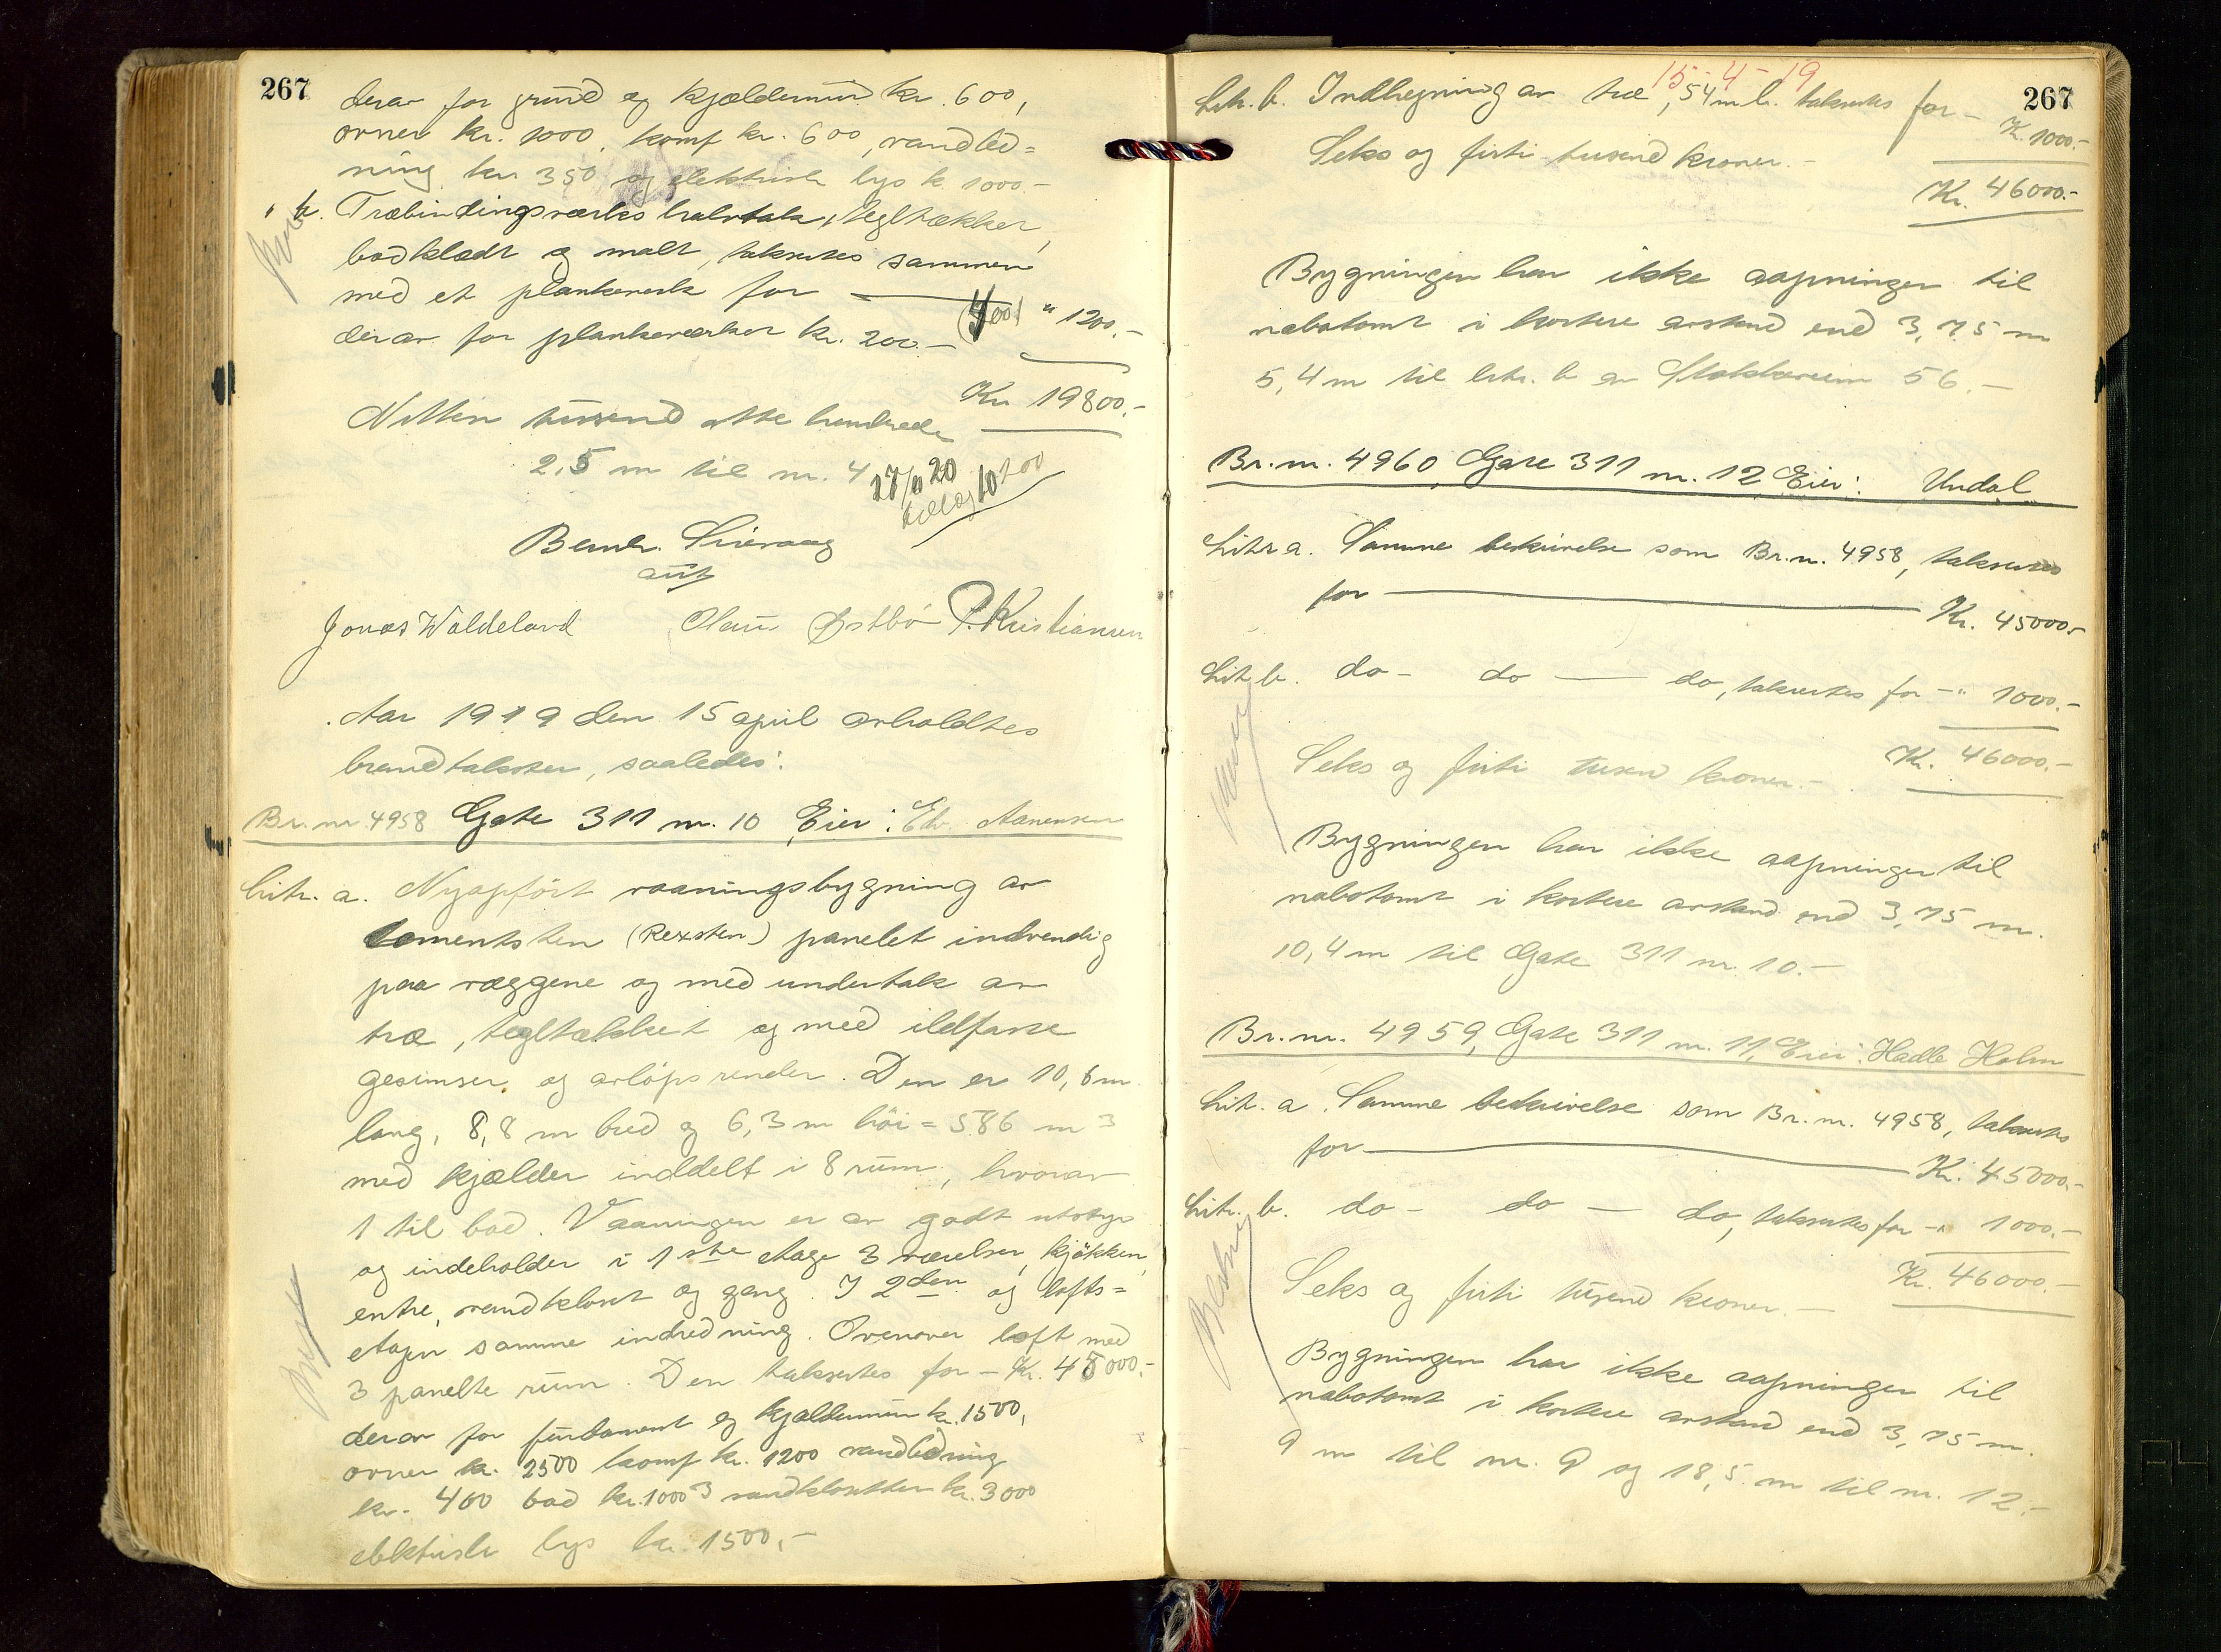 267
derav for grund og kjældermur kr. 600,
ovner kr. 1000, komf kr. 600, vandled=
ning kr 350 og elektrisk lys kr 1000.-
" b. Træbindingsverks halvtak, tegltækket,
bordklædt og malt, takseres sammen
med et plankeverk for — (700) " 1200.-
derav for plankeverket kr. 200.-
Kr 19800.-
Nitten tusend otte hundrede
2,5 m til nr. 4
17/11 20
tillæg 10200
Bernh. Sivraag
aut
Jonas Waldeland Olau Østbö P. Kristiansen
Aar 1919 den 15 april avholdtes
brandtakster, saaledes:
Br. nr 4958 Gate 311 nr. 10 Eier: Edv. Aanensen
Litr. a. Nyopfört vaaningsbygning av
Cementsten (Rexsten) panelet indvendig
paa væggene og med undertak av
træ, tegltækket og med ildfaste
gesimser og avlöpsrender. Den er 10,6 m
lang, 8,8 m bred og 6,3 m höi = 586 m3
med kjælder inddelt i 8 rum, hvorav
1 til bad. Vaaningen er av godt utstyr
og indeholder i 1ste etage 3 værelser, kjökken,
entre, vandkloset og gang. I 2den og lofts=
etagen samme indredning. Ovenover loft med
3 panelte rum. Den takseres for - Kr. 45000.-
derav for fundament og kjældermur kr. 1500,
ovner kr. 2500 komf kr. 1200 vandledning
kr. 400 bad kr. 1000 3 vandklosetter kr. 3000
elektrisk lys kr. 1500.-
15-4-19
267
Litr. b. Indhegning av træ, 54 m l. takseres for - Kr. 1000.-
Seks og firti tusend kroner.-
Kr. 46000.-
Bygningen har ikke aapninger til
nabotomt i kortere avstand end 3,75 m
5,4 m til litr. b av Stokkaveien 56.-
Br. nr. 4960, Gate 311 nr. 12 Eier: Undal
Litr a. Samme beskrivelse som Br. nr. 4958, takseres
for — Kr. 45000.-
Lit b. do - do — do, takseres for - " 1000.-
Seks og firti tusend kroner.- Kr. 46000.-
Bygningen har ikke aapninger til
nabotomt i kortere avstand end 3,75 m.
10,4 m til Gate 311 nr. 10.-
Br. nr. 4959, Gate 311 nr. 11, Eier: Hadle Holm
Litr. a. Samme beskrivelse som Br. nr. 4958, takseres
for — Kr. 45000.-
Litr. b. do - do — do, takseres for - " 1000.-
Seks og firti tusend kroner.- Kr. 46000.-
Bygningen har ikke aapninger til
nabotomt i kortere avstand end 3,75 m.
9 m til nr. 9 og 18,5 m til nr. 12.-